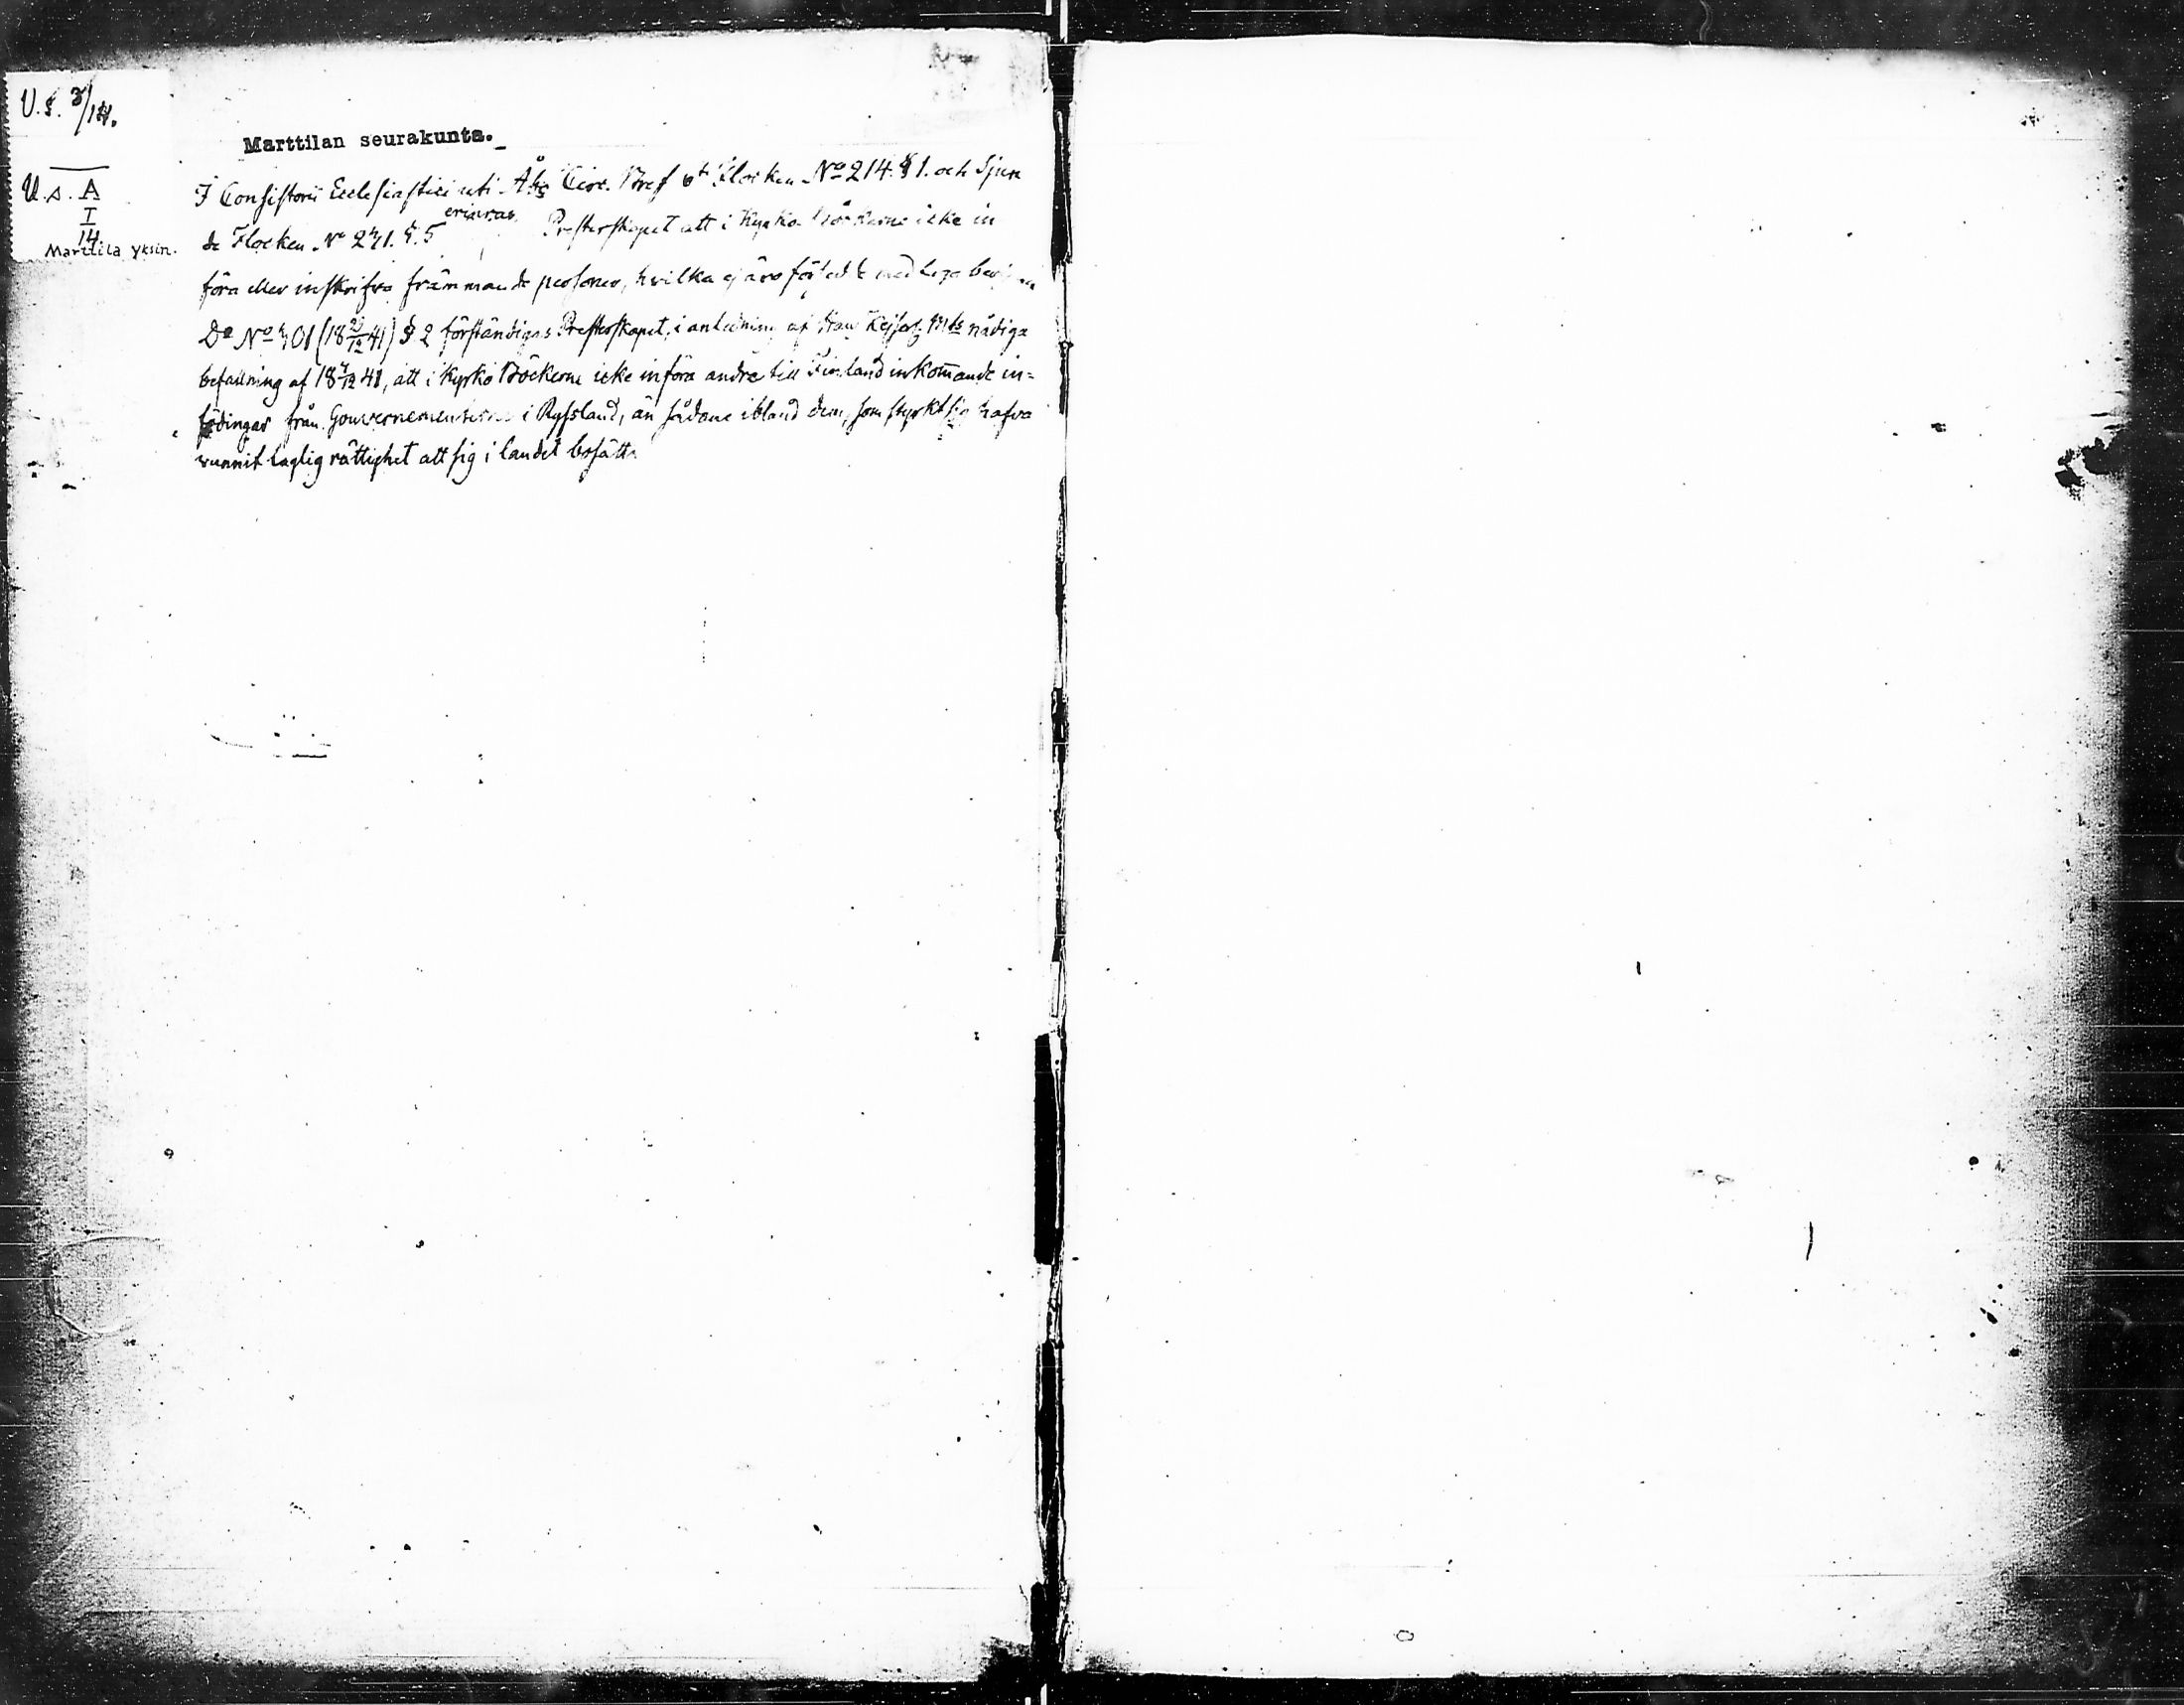 U.s. 3/14.
U.s. A
I
14
Marttila yksin.
Marttilan seurakunta.
I Consistorii Ecclesiastici uti Åbo Circ. Bref 6te Flocken No 214. § 1. och Sjun
de Flocken No 271. §. 5 erinras Presterskapet att i Kyrko Böckerne icke in
föra eller inskrifva främmande personer, hvilka ej äro försedde med laga
Do No 301 (18 /12 41) § 2 förständigas Presterskapet, i anledning af Hans Kejserl. Mts nådiga
befallning af 18 /12 41, att i Kyrko Böckerne icke införa andre till Finland inkommande in=
födingar från Gouvernementerne i Ryssland, än sådane ibland dem, som styrkt sig hafva
vunnit laglig rättighet att sig i landet bosätta